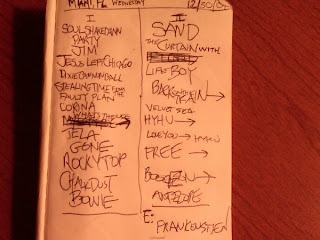 MIAMI, FL WEDNESDAY 12/30/09
I
SOUL SHAKEDOWN
PARTY
JIM
JESUS LEFT CHICAGO
DIXIE CANNONBALL
STEALING TIME FROM THE
FAULTY PLAN
CORINA
TELA
GONE
ROCKY TOP
CHALKDUST
BOWIE
II
SAND
THE CURTAIN WITH
LIFE BOY
BACK ON THE
TRAIN →
VELVET SEA
HYHU →
LOVE YOU → HYHU
FREE →
BOOGIE ON →
ANTELOPE
E:
FRANKENSTEIN